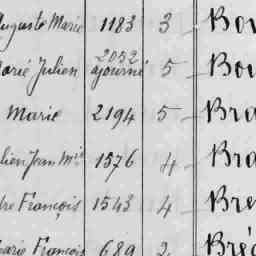 Auguste Marie 1183 3 Bou
Marie Julien 2052 ajourné 5 Bou
Marie 2194 5 Bra
Julien Jean Mie 1576 4 Bra
François 1543 4 Bre
Marie François 689 2 Bré